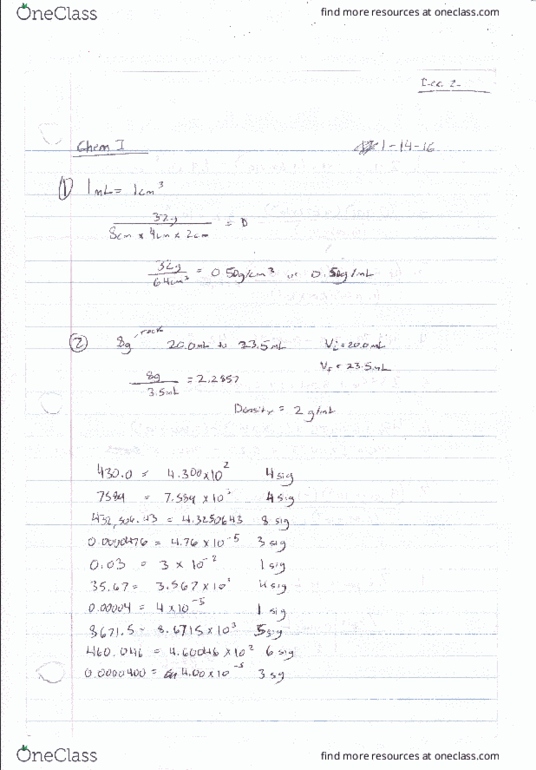 OneClass
find more resources at oneclass.com
Lec. 2
Chem I 1-14-16
① 1mL = 1cm³
32g / 8cm x 4cm x 2cm = D
32g / 64cm³ = 0.50g/cm³ or 0.50g/mL
② 8g rock 20.0mL to 23.5mL Vi = 20.0mL
Vf = 23.5mL
8g / 3.5mL = 2.2857
Density = 2 g/mL
430.0 = 4.300x10² 4 sig
7584 = 7.584 x10³ 4 sig
432,506.43 = 4.3250643 8 sig
0.0000476 = 4.76 x10⁻⁵ 3 sig
0.03 = 3 x 10⁻² 1 sig
35.67 = 3.567 x10¹ 4 sig
0.00004 = 4x10⁻⁵ 1 sig
8671.5 = 8.6715x10³ 5 sig
460.046 = 4.60046 x10² 6 sig
0.0000400 = 4.00 x10⁻⁵ 3 sig
OneClass
find more resources at oneclass.com